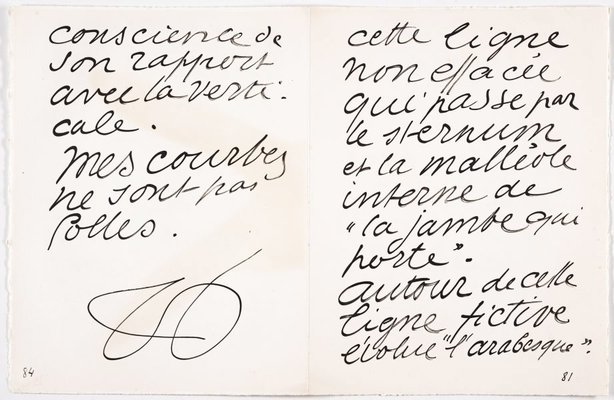 conscience de
son rapport
avec la verti-
cale.
Mes courbes
ne sont pas
folles.
84
cette ligne
non effacée
qui passe par
le sternum
et la malléole
interne de
"la jambe qui
porte".
Autour de cette
ligne fictive
évolue "l'arabesque".
81